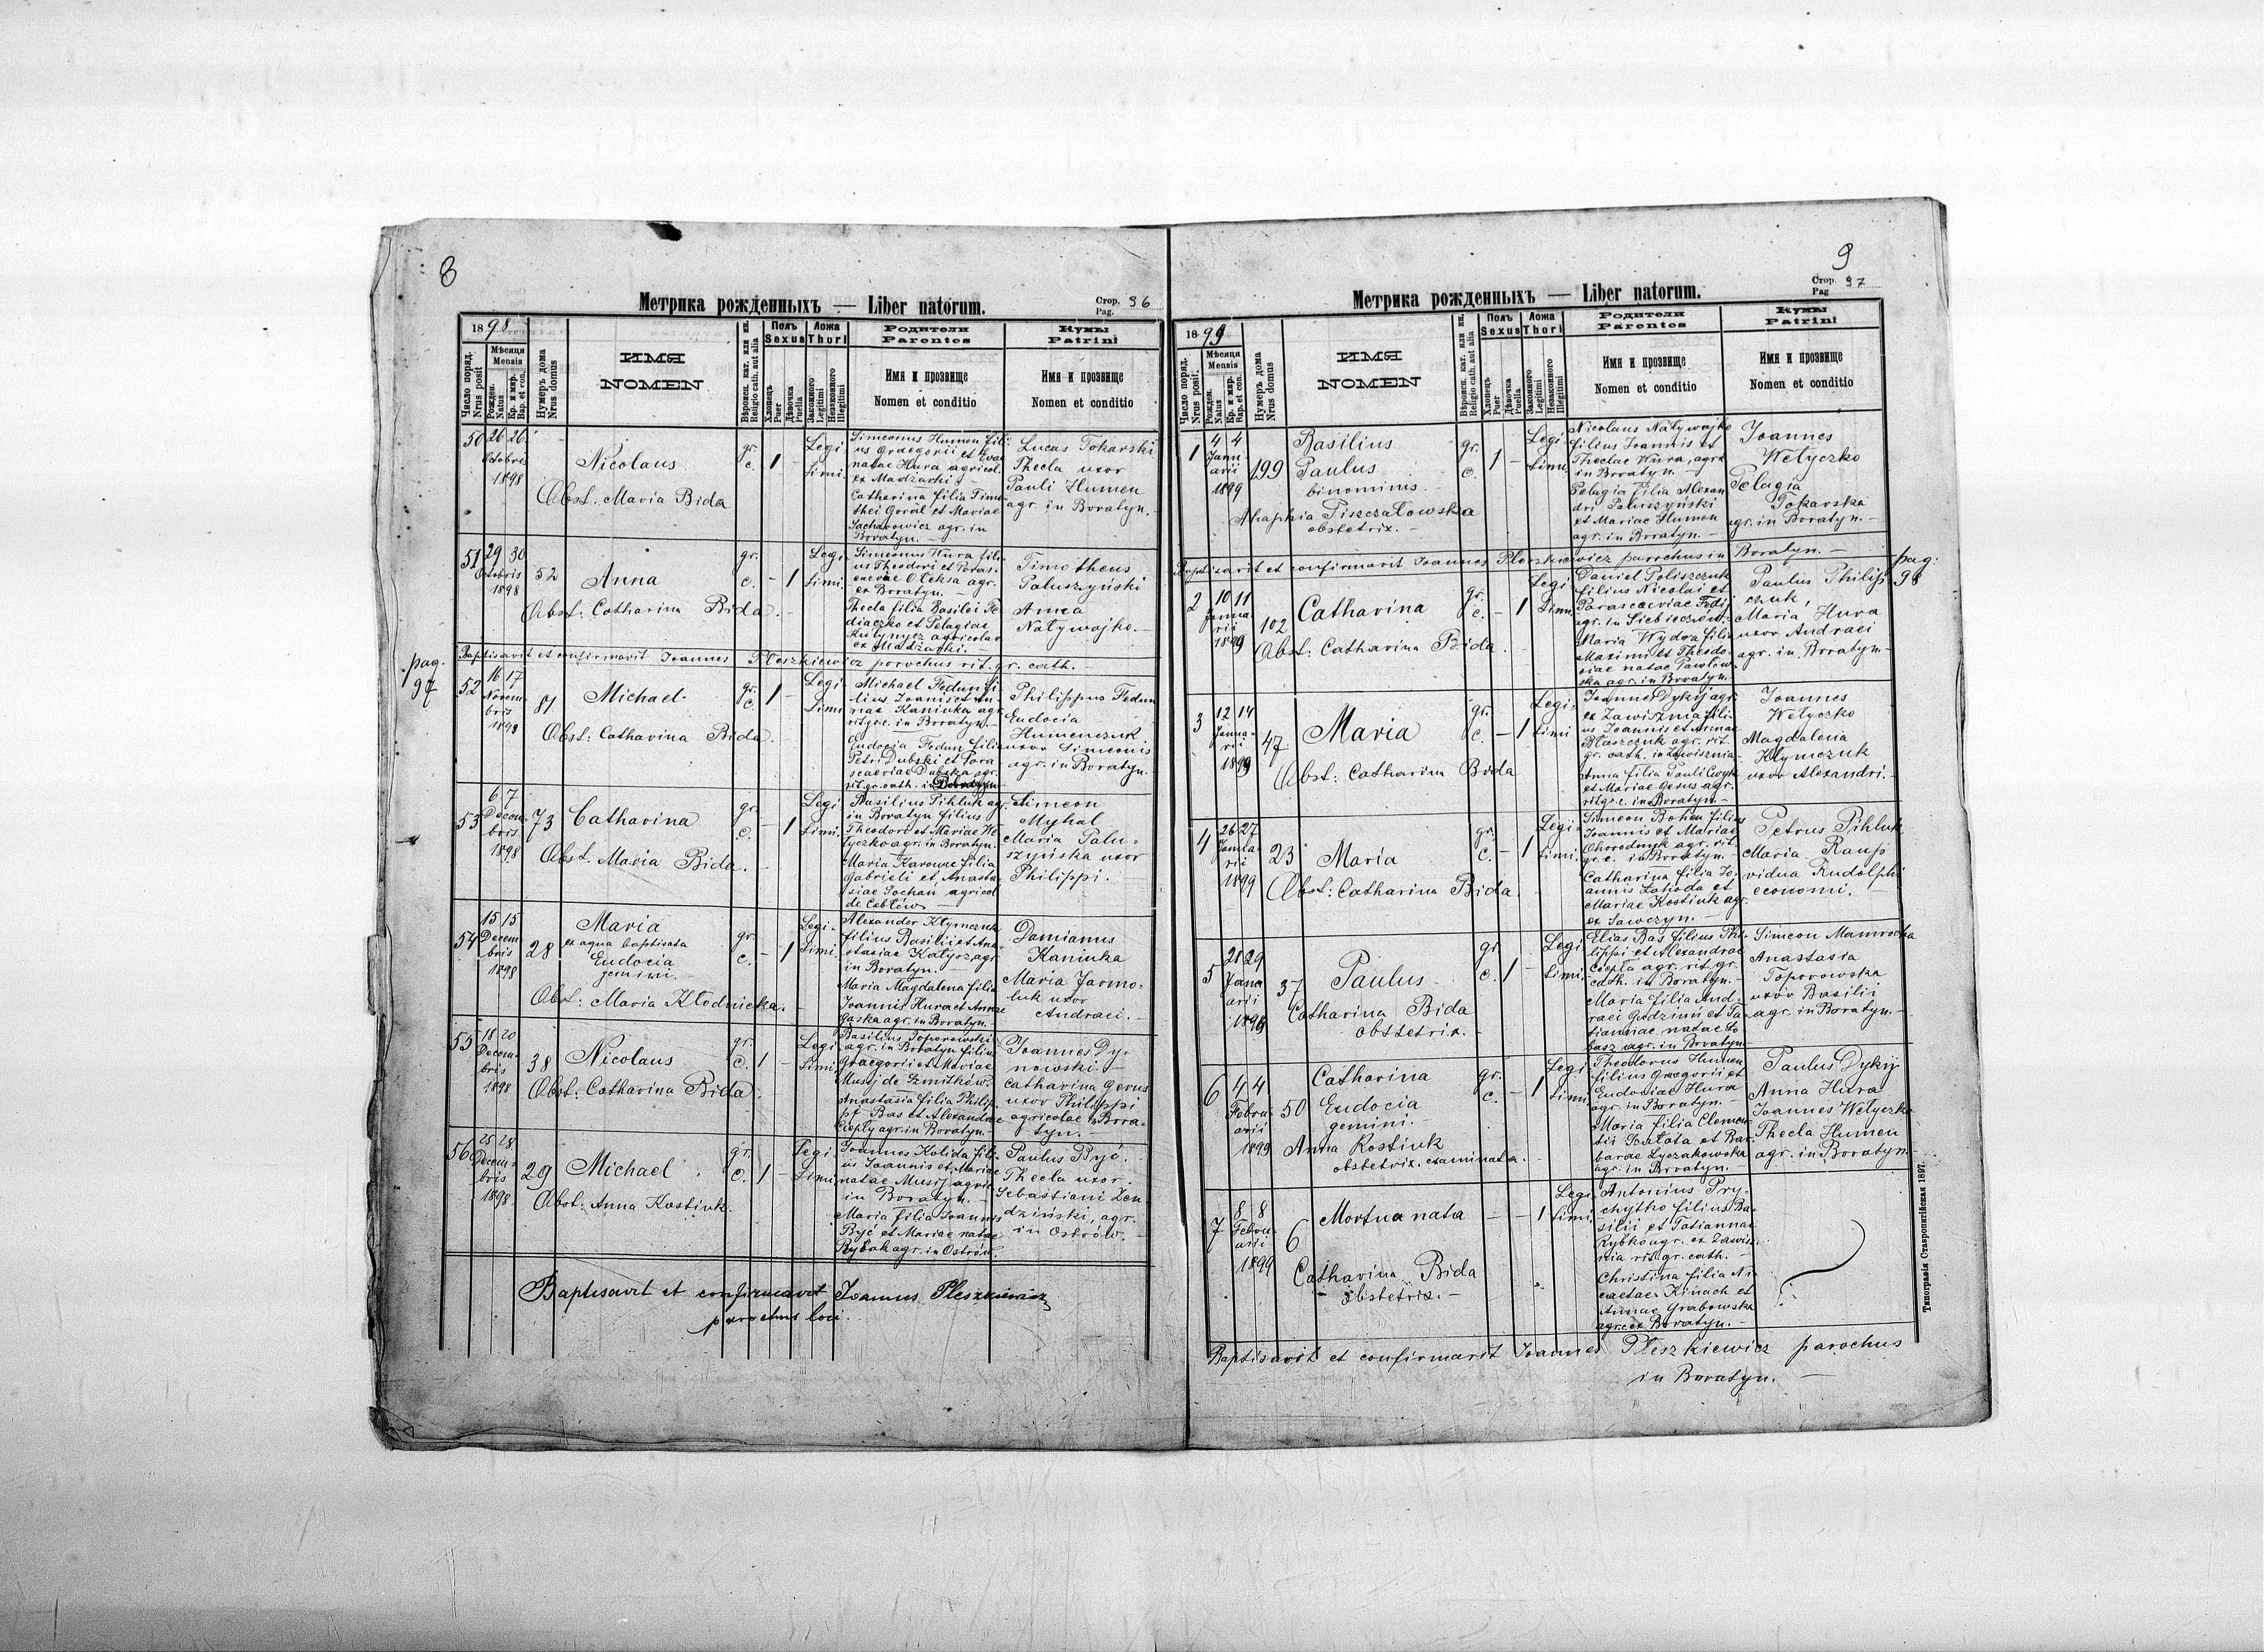 8
Метрика рожденныхъ — Liber natorum.
Стор. 96
Pag.
1898
Число поряд.
Nrus posit
Мѣсяця
Mensis
Рожден.
Natus
Кр. и мѵр.
Bap. et con.
Нумеръ дома
Nrus domus
ИМЯ
NOMEN
Вѣроисп. кат. или ин.
Religio cath. aut alia
Полъ
Sexus
Хлопецъ
Puer
Дѣвочка
Puella
Ложа
Thori
Законного
Legitimi
Незаконного
Illegitimi
Родители
Parentes
Имя и прозвище
Nomen et conditio
Кумы
Patrini
Имя и прозвище
Nomen et conditio
50
26 26
Octobris
1898
Nicolaus
Obst. Maria Bida
gr.
c.
1 -
Legi-
timi.
Simeonus Humen fili-
us Graegorii et Evae
natae Hura agricol.
ex Madzarki
Catharina filia Timo-
thei Goról et Mariae
Sacharowicz agr. in
Boratyn. —
Lucas Tokarski
Thecla uxor
Pauli Humen
agr. in Boratyn. —
51
29 30
Octobris
1898
52
Anna
Obst: Catharina Bida.
gr.
c.
- 1
Legi-
timi.
Simeonus Hura fili-
us Theodori et Paras-
caevae Oleksa agr.
ex Boratyn. —
Thecla filia Basilei Fe-
diaczko et Pelagiae
Kutynycz agricolae
ex Madzarki. —
Timotheus
Paluszyński
Anna
Natywajko. —
Baptisavit et confirmavit Joannes Pleszkiewicz parochus rit. gr. cath. —
pag.
97
52
16 17
Novem-
bris
1898
81
Michael
Obst: Catharina Bida.
gr.
c.
1 -
Legi-
timi
Michael Fedun fi-
lius Joannis et An-
nae Kaniuka agr.
rit. gr. c. in Boratyn. —
Eudocia Fedun filia
Petri Dubski et Para
scaeviae Dubska agr.
rit. gr. cath. in Boratyn
Philippus Fedun
Eudocia
Humenczuk
uxor Simeonis
agr. in Boratyn.
53
6 7
Decem-
bris
1898
73
Catharina
Obst. Maria Bida.
gr.
c.
- 1
Legi-
timi.
Basilius Pihluk ag.
in Boratyn filius
Theodori et Mariae We-
lyczko agr. in Boratyn.
Maria Karowec filia
Gabrieli et Anasta-
siae Sochań agricol
de Cebłów —
Simeon
Myhal
Maria Palu-
szyńska uxor
Philippi. —
54
15 15
Decem
bris
1898
28
Maria
ex aqua baptisata
Eudocia
gemini. —
Obst: Maria Kłodnicka. —
gr.
c.
- 1
Legi-
timi.
Alexander Kłymczuk
filius Basilii et Ana-
stasiae Kałysz agr
in Boratyn. —
Maria Magdalena filia
Joannis Hura et Annae
Gaska agr. in Boratyn.
Damianus
Kaniuka
Maria Jarmo-
luk uxor
Andraei. —
55
18 20
Decem-
bris
1898
38
Nicolaus
Obst: Catharina Bida.
gr.
c.
1 -
Legi-
timi.
Basilius Toporowski
agr. in Boratyn filius
Graegorii et Mariae
Musij de Szmitków.
Anastasia filia Philip-
pi Bas et Alexandrae
Ciepły agr. in Boratyn.
Joannes Dy-
nowski. —
Catharina Gerus
uxor Philippi
agricolae in Bora-
tyn. —
56
25 28
Decem-
bris
1898
29
Michael.
Obst: Anna Kostiuk.
gr.
c.
1 -
Legi-
timi.
Joannes Kolida fili-
us Joannis et Mariae
natae Musij agric
in Boratyn. —
Maria filia Joannis
Być et Mariae natae
Rybak agr. in Ostrów.
Paulus Być.
Thecla uxor
Sebastiani Zen-
dziński, agr.
in Ostrów. —
Baptisavit et confirmavit Joannes Pleszkiewicz
parochus loci.
9
Метрика рожденныхъ — Liber natorum.
Стор. 97
Pag
1899
Число поряд.
Nrus posit.
Мѣсяця
Mensis
Рожден.
Natus
Кр. и мѵр.
Bap. et con.
Нумеръ дома
Nrus domus
ИМЯ
NOMEN
Вѣроисп. кат. или ин.
Religio cath. aut alia
Полъ
Sexus
Хлопецъ
Puer
Дѣвочка
Puella
Ложа
Thori
Законного
Legitimi
Незаконного
Illegitimi
Родители
Parentes
Имя и прозвище
Nomen et conditio
Кумы
Patrini
Имя и прозвище
Nomen et conditio
1
4 4
Janu
arii
1899
199
Basilius
Paulus
binominis.
Ahaphia Piszczatowska
obstetrix. —
gr.
c.
1 -
Legi-
timi.
Nicolaus Natywajko
filius Joannis et
Theclae Hura, agr.
in Boratyn. —
Pelagia filia Alexan
dri Paluszyński
et Mariae Humen
agr. in Boratyn. —
Joannes
Wetyczko
Pelagia
Tokarska
agr. in Boratyn. —
Baptisavit et confirmavit Joannes Pleszkiewicz parochus in Boratyn. —
pag:
98
2
10 11
Janua-
rii
1899
102
Catharina
Obst: Catharina Bida.
gr.
c.
- 1
Legi
timi.
Daniel Poliszczuk
filius Nicolai et
Parascaeviae Fedij
agr. in Siebieczów.
Maria Wydra filia
Maximi et Theodo-
siae natae Pawłow-
ska agr. in Boratyn.
Paulus Philip
chuk,
Maria Hura
uxor Andraei
agr. in Boratyn —
3
12 14
Janua-
rii
1899
47
Maria
Obst: Catharina Bida
gr.
c.
- 1
Legi-
timi
Joannes Dykij agr.
ex Zawisznia fili-
us Joannis et Annae
Błaszczuk agr. rit.
gr. cath. in Zawisznia
et Mariae Gerus agr.
rit gr. c. in Boratyn. —
Joannes
Wetyczko
Magdalena
Kłymczuk
uxor Alexandri. —
4
26 27
Janua-
rii
1899
23
Maria
Obst: Catharina Bida.
gr.
c.
- 1
Legi-
timi.
Simeon Bohen filius
Joannis et Mariae
Ohorodnyk agr. rit.
gr. c. in Boratyn. —
Catharina filia Jo-
annis Lahoda et
Mariae Kostiuk agr.
ex Sawczyn. —
Petrus Pihluk
Maria Raup
vidua Rudolphi
economi. —
5
28 29
Janu
arii
1899
37
Paulus
Catharina Bida
obstetrix. —
gr.
c.
1 -
Legi-
timi.
Elias Bas filius Phi-
lippi et Alexandrae
Ciepła agr. rit. gr.
cath. in Boratyn. —
Maria filia And-
raei Godziun et Ta-
tiannae natae Lo-
basz agr. in Boratyn
Simeon Mamrocha
Anastasia
Toporowska
uxor Basilii
agr. in Boratyn. —
6
4 4
Febru-
arii
1899
50
Catharina
Eudocia
gemini. —
Anna Kostiuk
obstetrix examinata. —
gr.
c.
- 1
Legi-
timi
Theodorus Humen
filius Graegorii et
Eudociae Hura
agr. in Boratyn. —
Maria filia Clemen-
tii Hałata et Bar-
barae Łyczakowska
agr. in Boratyn. —
Paulus Dykij
Anna Hura
Joannes Wetyczko
Thecla Humen
agr. in Boratyn. —
7
8 8
Febru-
arii
1899
6
Mortua nata
Catharina Bida
obstetrix. —
-
- 1
Legi-
timi.
Antonius Pry-
chytko filius Ba-
silii et Tatiannae
Rybko agr. ex Zawisz-
nia rit. gr. cath. —
Christina filia Ni-
caetae Kinach et
Annae Grabowska
agr. ex Boratyn. —
Baptisavit et confirmavit Joannes Pleszkiewicz parochus
in Boratyn. —
Типографія Ставропигійская 1897.